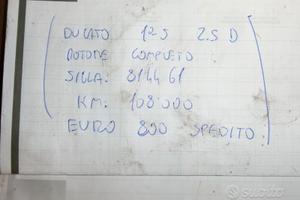 DUCATO 12S 2.5 D
MOTORE COMPLETO
SIGLA: 8144 61
KM: 108'000
EURO 800 SPEDITO
subito